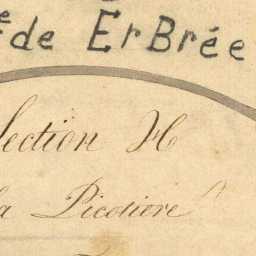 e de ErBrée
Section H
la Picotiere